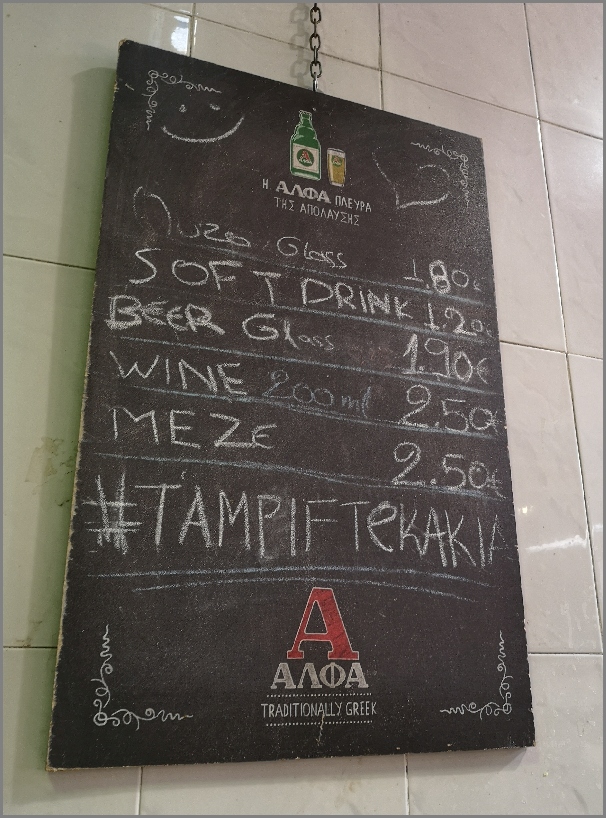 Η ΑΛΦΑ ΠΛΕΥΡΑ
ΤΗΣ ΑΠΟΛΑΥΣΗΣ
Ouzo Glass 1.80€
SOFT DRINK 1.20€
BEER Glass 1.90€
WINE 200ml 2.50€
MEZE 2.50€
#TAMPIFTeKAKIA
A
ΑΛΦΑ
TRADITIONALLY GREEK